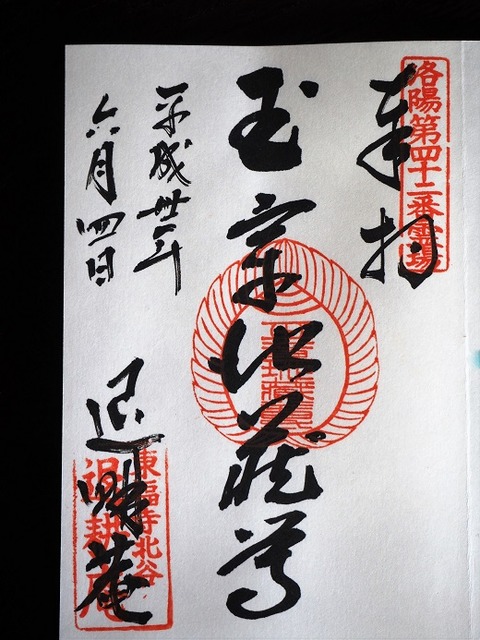 洛陽第四十二番霊場
奉拝
玉章地蔵尊
平成 年
六月四日
東福寺北谷
退耕庵
退耕庵